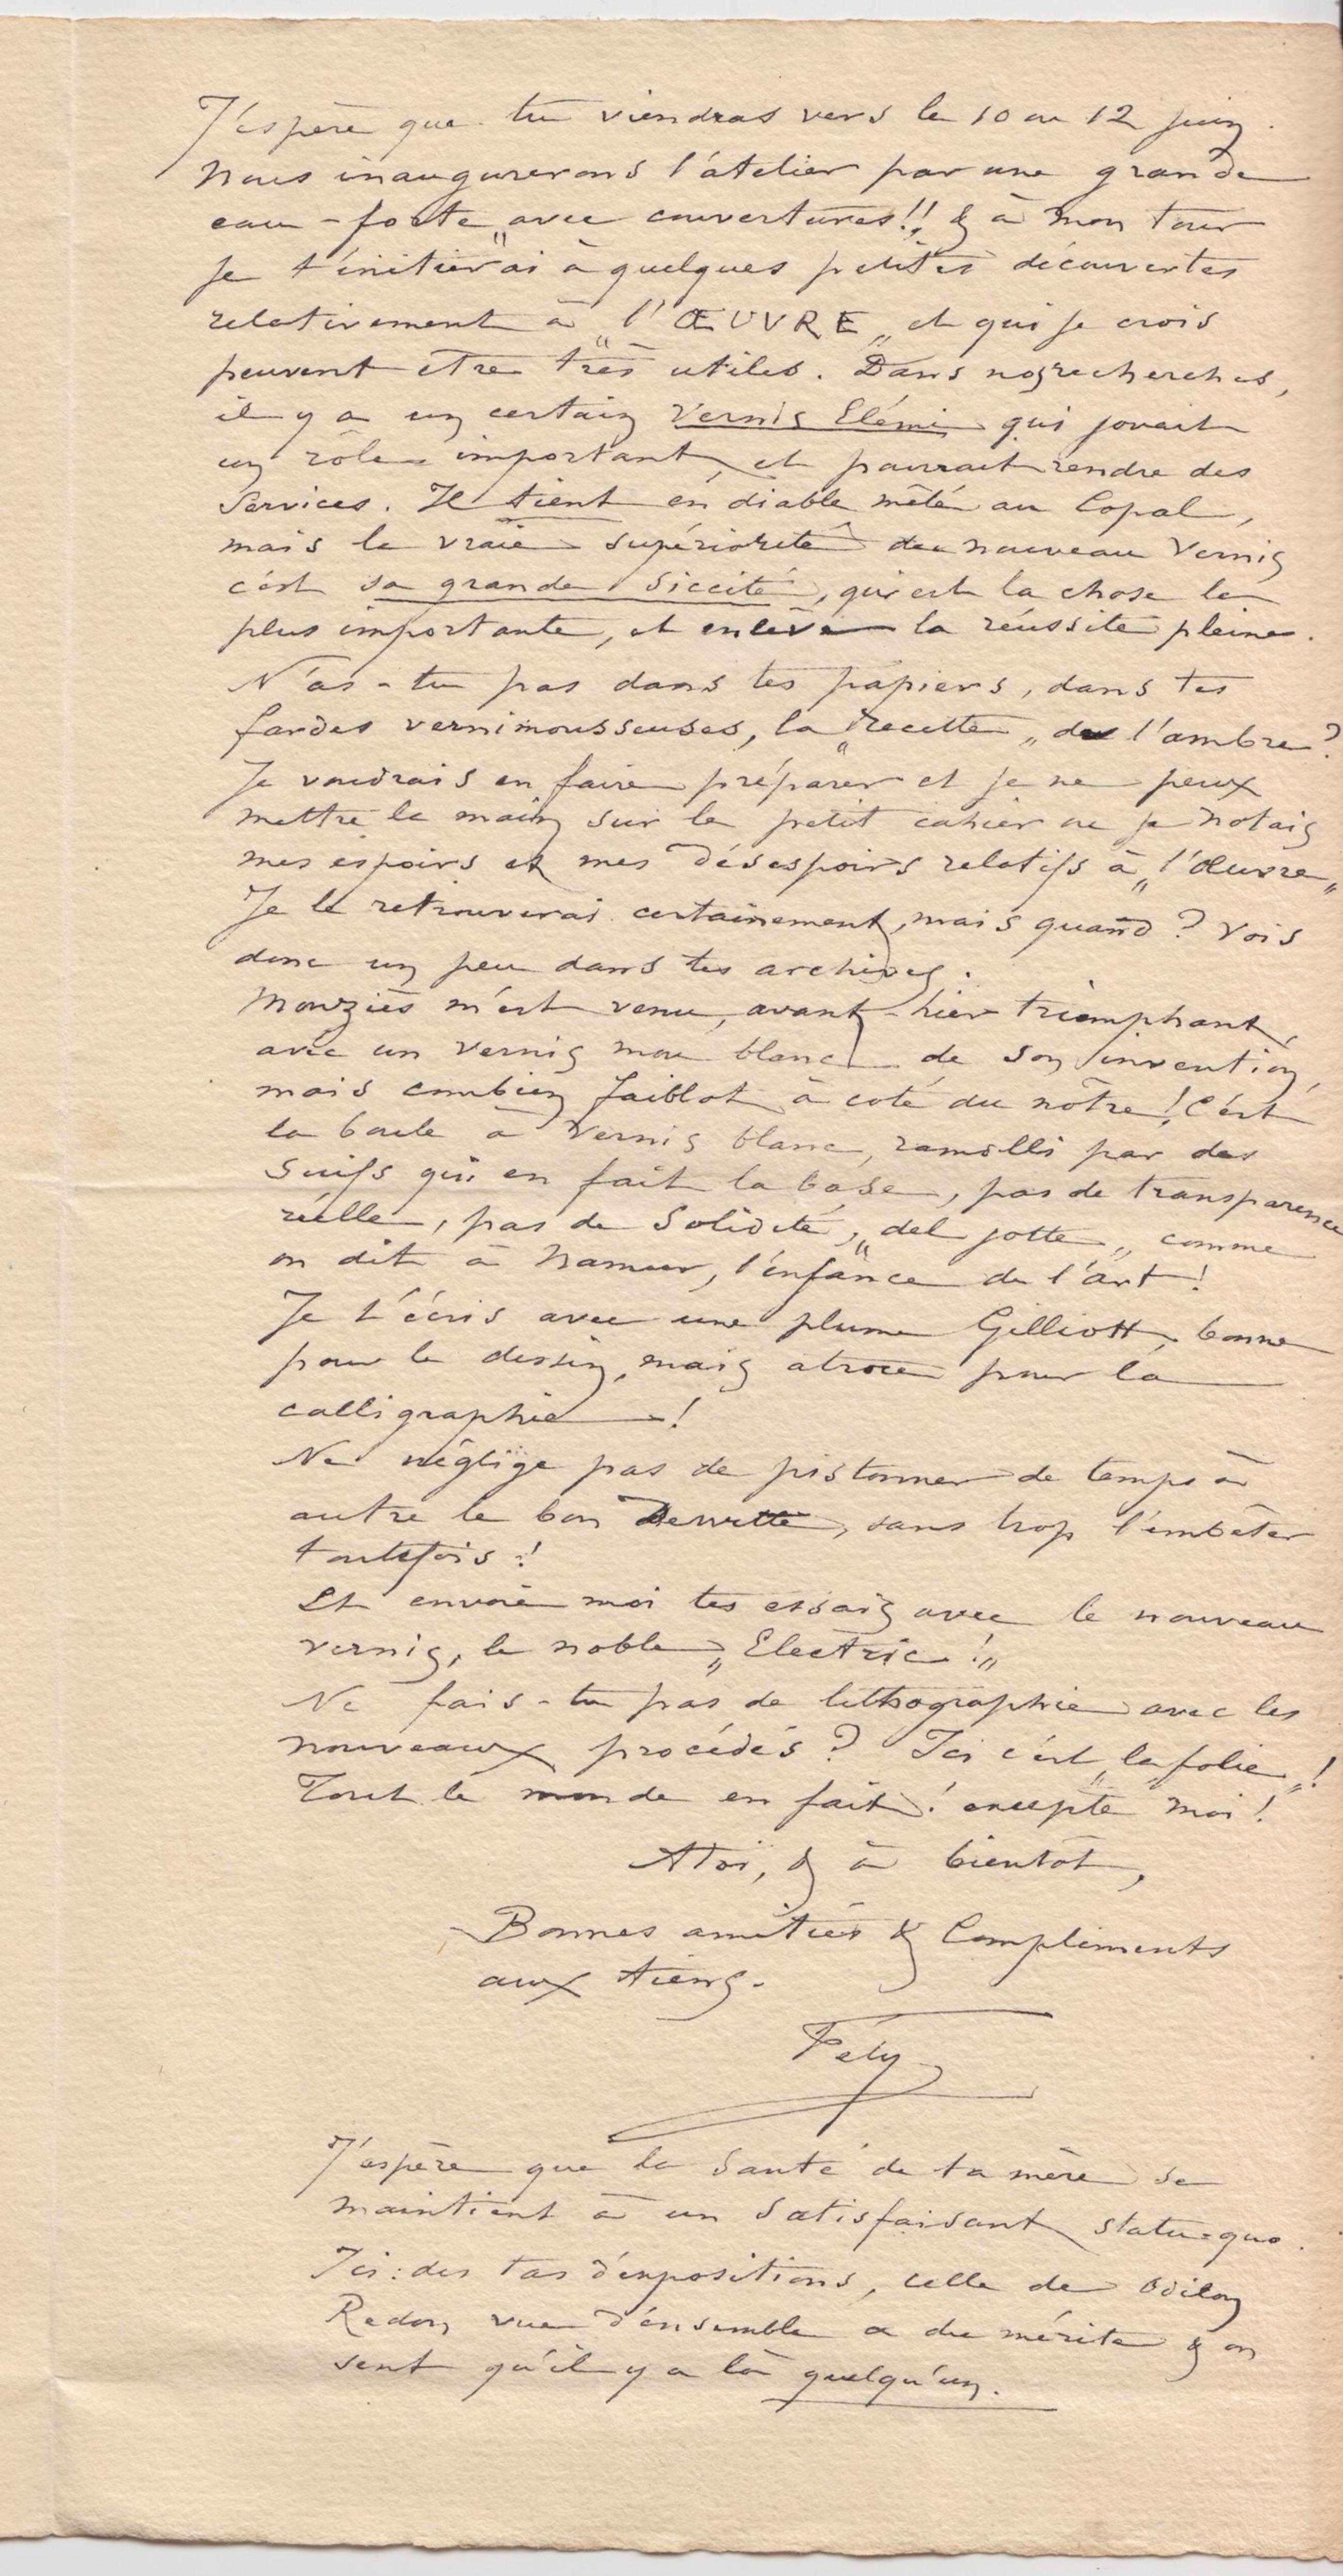 J'éspère que tu viendras vers le 10 ou 12 juin.
Nous inaugurerons l'atelier par une grande
eau-forte „avec couvertures!!„ & à mon tour
je t'initierai à quelques petites découvertes
relativement à „l'ŒUVRE„ et qui je crois
peuvent etre très utiles. Dans nos recherches,
il y a un certain Vernis Elémi qui jouait
un rôle important, et pourrait rendre des
Services. Il tient en diable mêlé au Copal,
mais la vraie supériorité du nouveau Vernis
c'est sa grande siccité, qui est la chose la
plus importante, et enlève la réussite pleine.
N'as-tu pas dans tes papiers, dans tes
fardes vernimousseuses, la „recette„ de l'ambre?
Je voudrais en faire préparer et je ne peux
mettre la main sur le petit cahier ou je notais
mes espoirs et mes désespoirs relatifs à „l'Œuvre„
Je le retrouverai certainement, mais quand? Vois
donc un peu dans tes archives.
Mouziès m'est venu, avant-hier triomphant,
avec un vernis mou blanc de son invention,
mais combien faiblot à coté du nôtre! C'est
la boule à Vernis blanc, ramolli par des
Suifs qui en fait la base, pas de transparence
réelle, pas de Solidité, „del jotte„ comme
on dit à Namur, l'enfance de l'art!
Je t'écris avec une plume Gilliott, bonne
pour le dessin, mais atroce pour la
calligraphie!
Ne néglige pas de pistonner de temps à
autre le bon Dewitte, sans trop l'embêter
toutefois!
Et envoie moi tes essais avec le nouveau
vernis, le noble „Electric!„
Ne fais-tu pas de lithographie avec les
nouveaux procédés? Ici c'est „la folie„!
Tout le monde en fait! excepté moi!
A toi, & à bientôt,
Bonnes amitiés & Compliments
aux tiens.
Fély
J'espère que la Santé de ta mère se
maintient à un Satisfaisant statu-quo.
Ici: des tas d'expositions, celle de Odilon
Redon vue d'ensemble a du mérite & on
sent qu'il y a là quelqu'un.